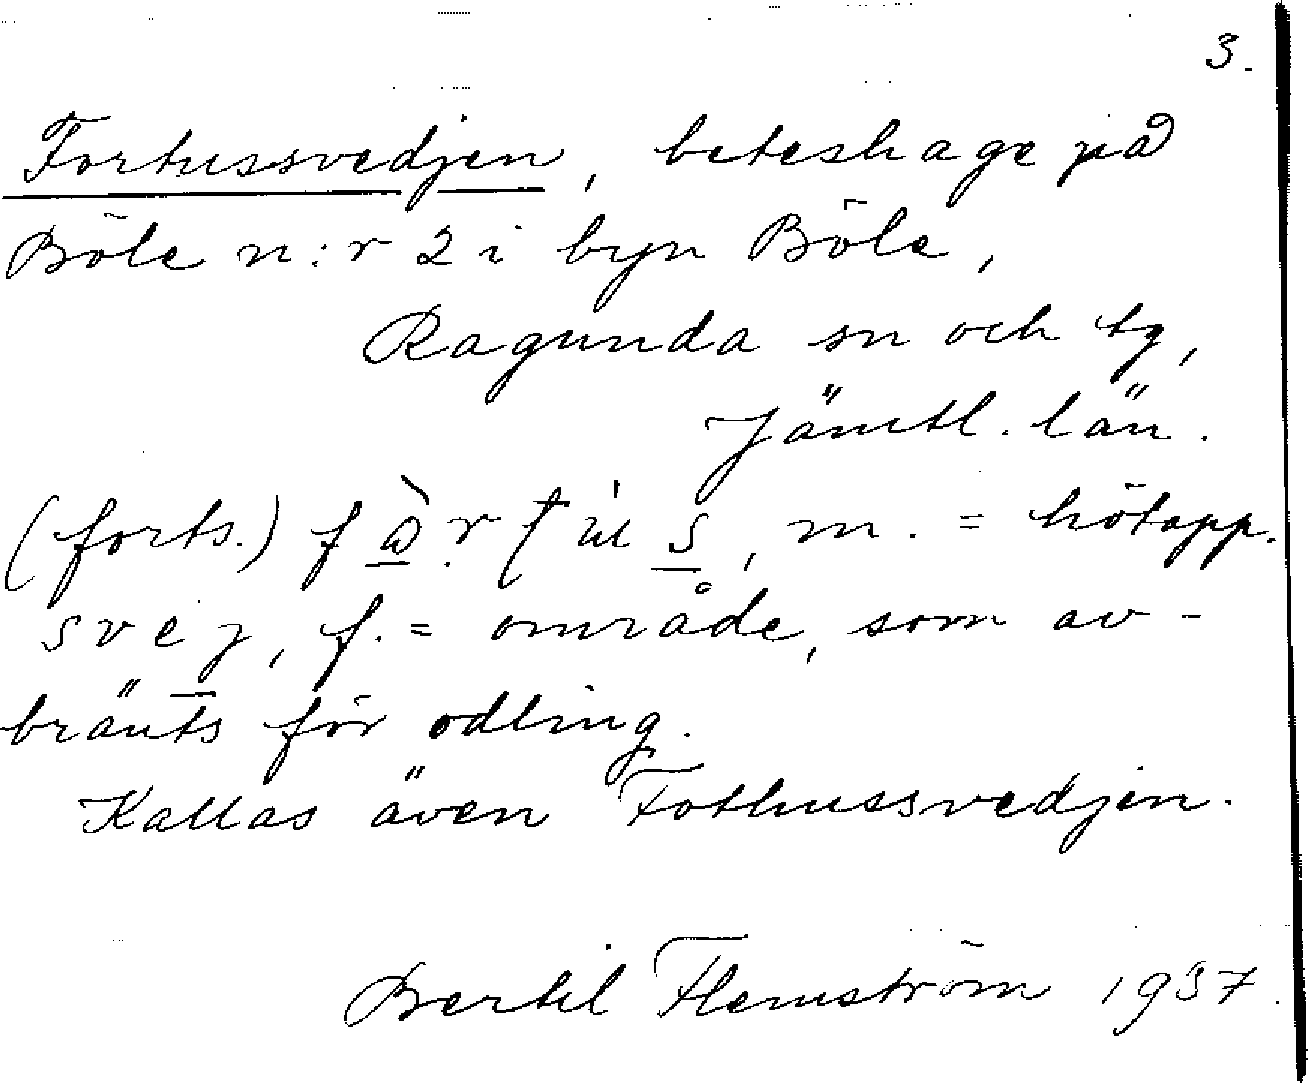 3.
Fortussvedjen, beteshage på
Böle n:r 2 i byn Böle,
Ragunda sn och tg,
Jämtl. län.
(forts.) m. = hötapp.
svej, f. = område, som av-
bränts för odling.
Kallas även Fothussvedjen.
Bertil Flemström 1937.